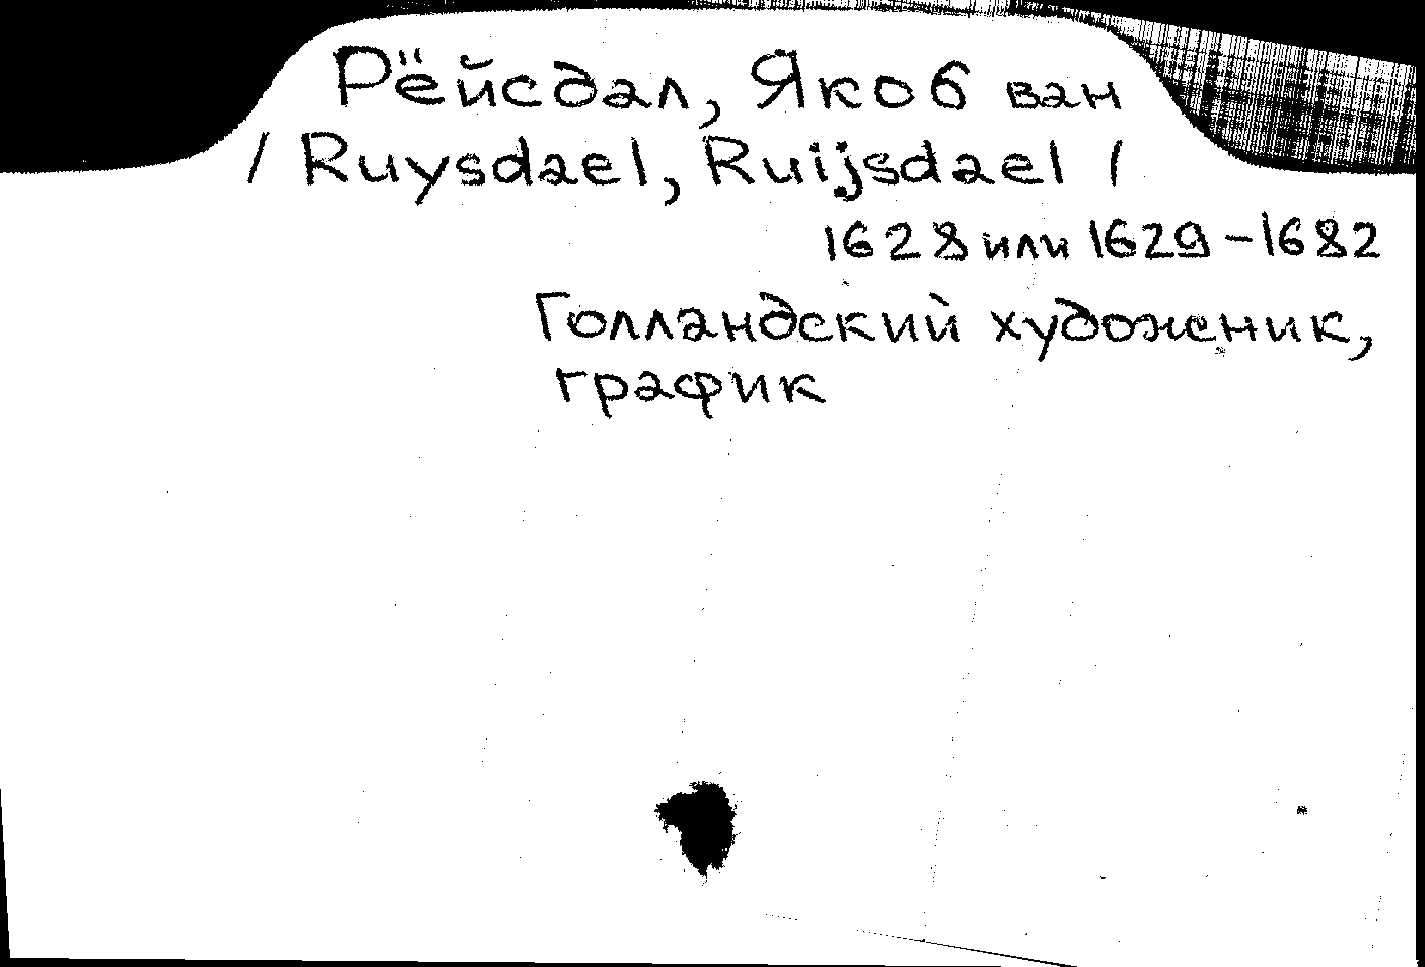 Рёйсдал, Якоб ван
/ Ruysdael, Ruijsdael /
1628 или 1629-1682
Голландский художник,
график